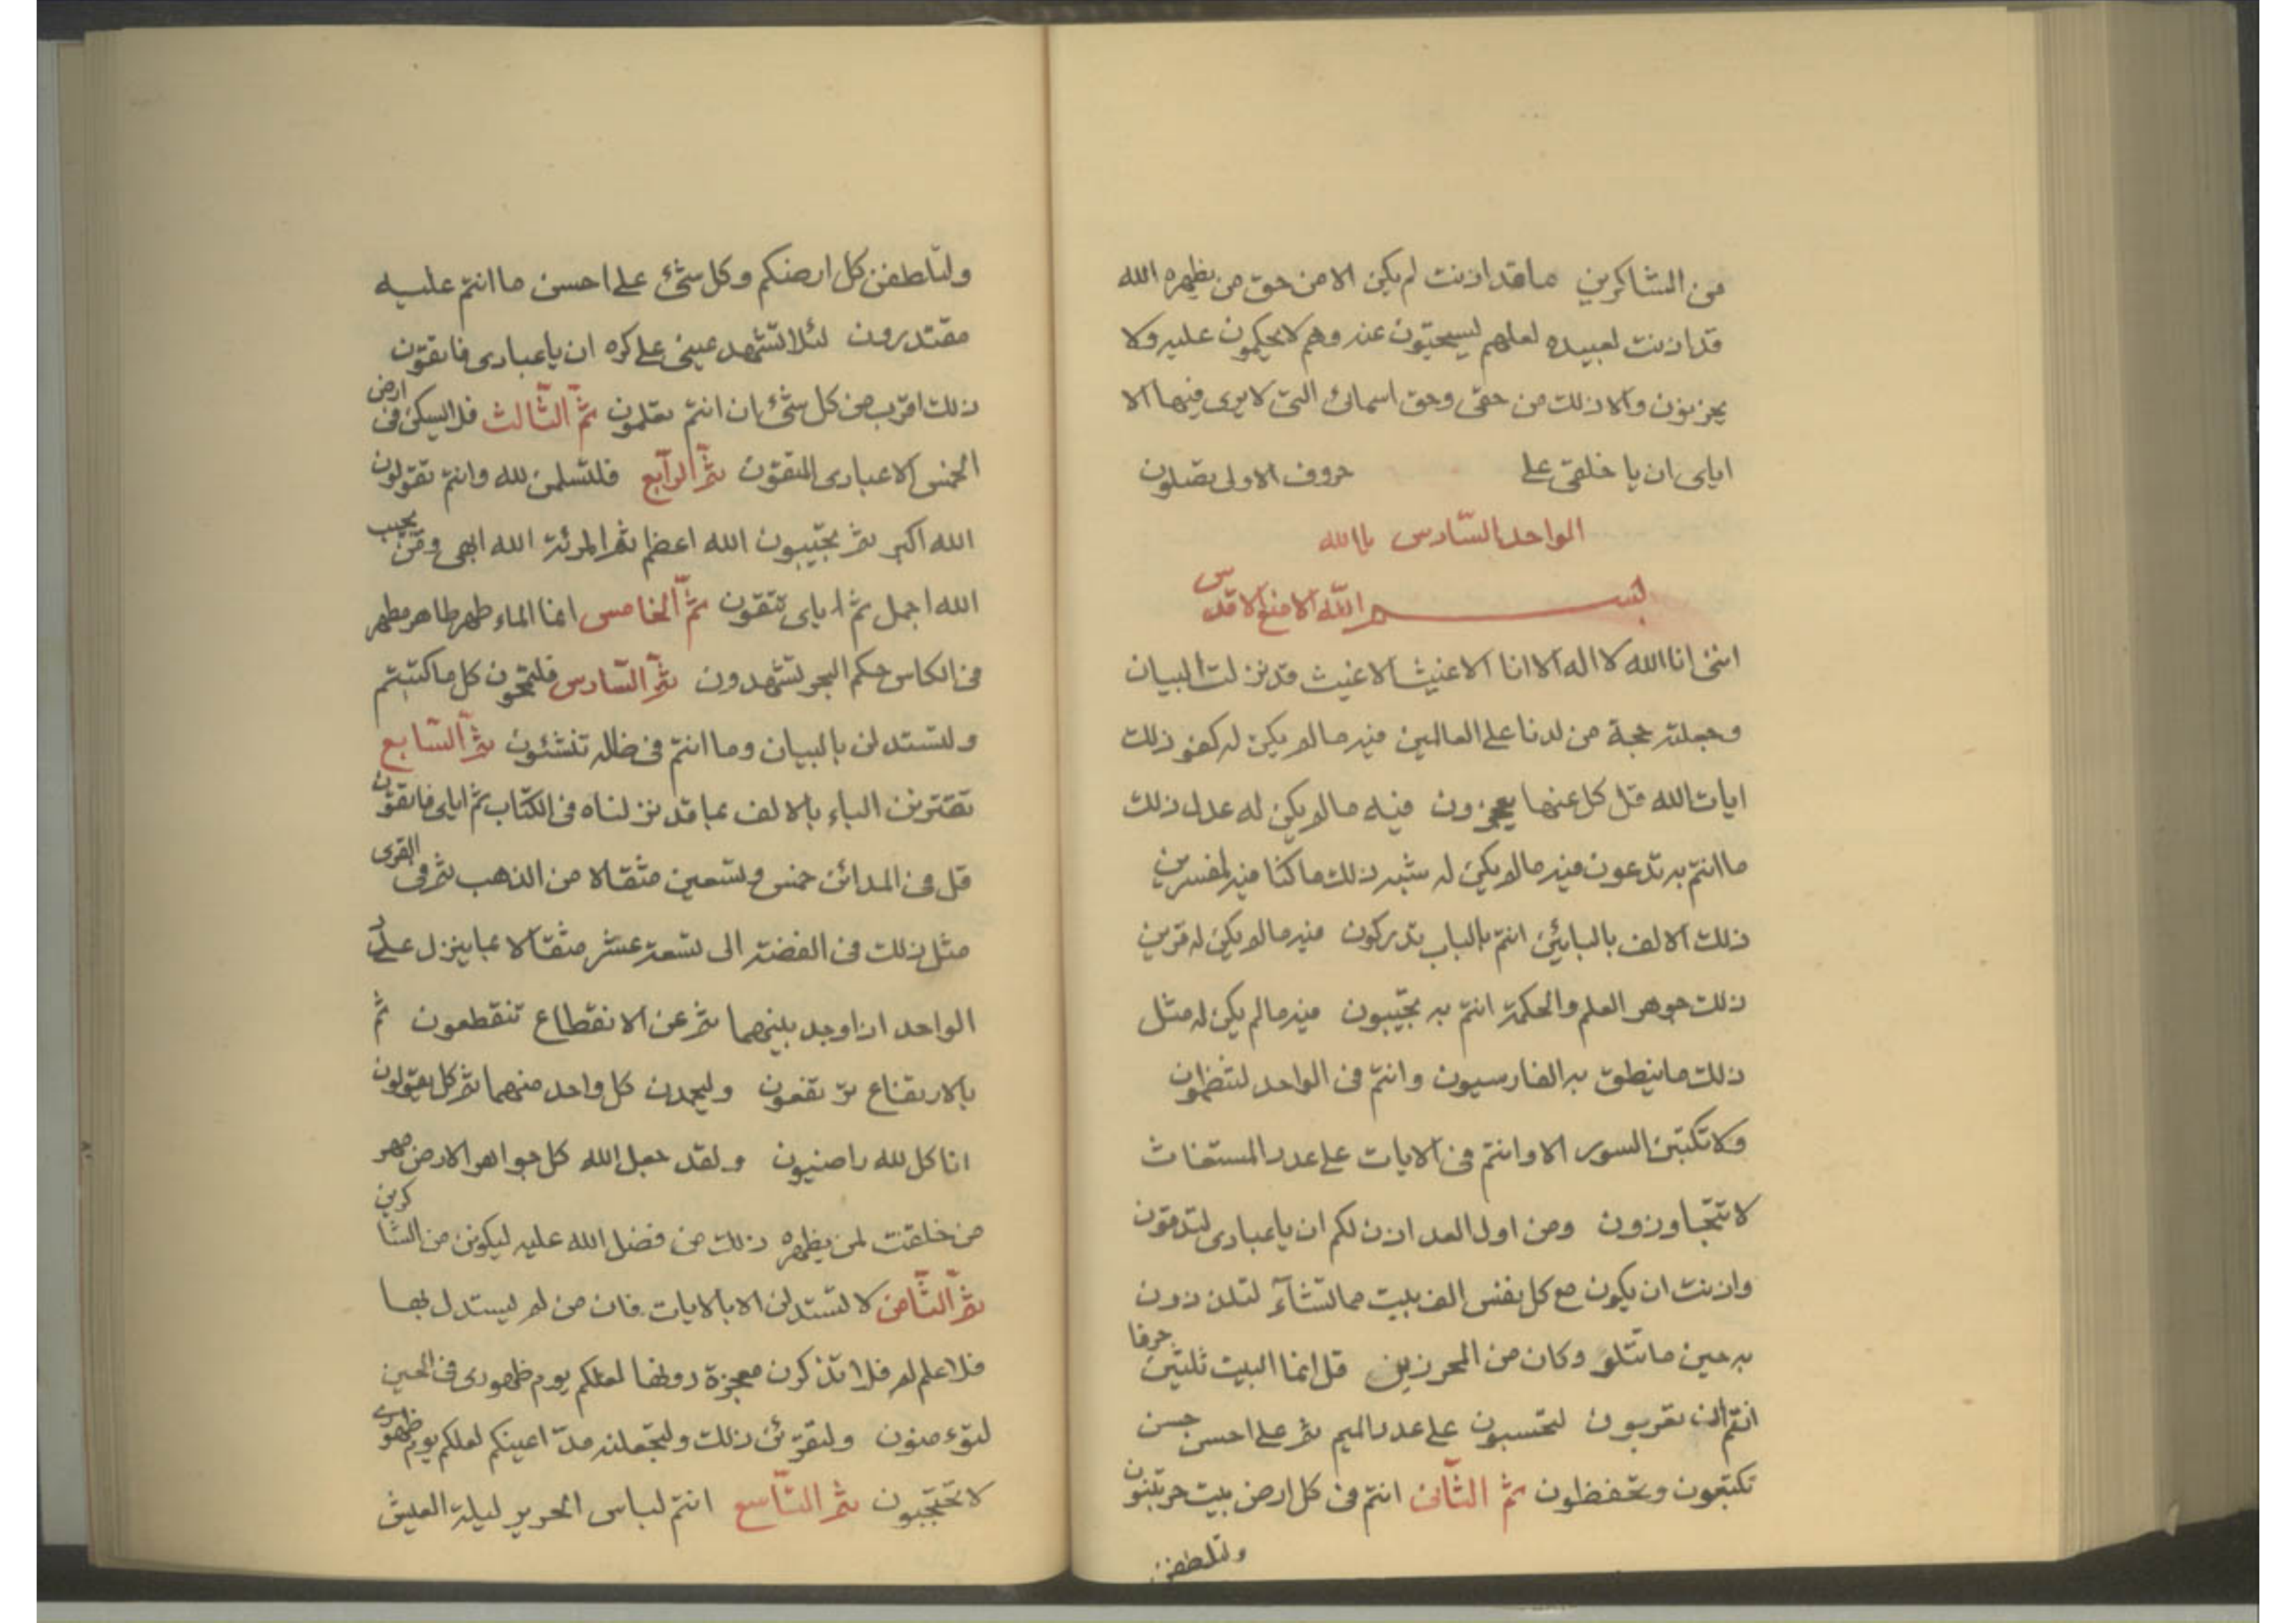 من الشاكرين ماقد اذنت لم يكن الا من حق من يظهره الله
قد اذنت لعبيده لعلهم ليستحيون عنه وهم لا يحكمون عليه ولا
يحزنون والا ذلك من حقى وحق اسمائى التى لا يرى فيها الا
اياى ان يا خلقى على حروف الاولى تصلون
الواحد السادس بالله
بسم الله الامنع الاقدس
اننى انا الله لا اله الا انا الاغيث الاغيث قد نزلت البيان
وجعلته حجة من لدنا على العالمين فيه مالم يكن له كفو ذلك
ايات الله قل كل عنها يعجزون فيه مالم يكن له عدل ذلك
ما انتم به تدعون فيه مالم يكن له شبه ذلك ما كنا فيه لمفسرين
ذلك الالف بالبائين انتم بالباب تدركون فيه مالم يكن له قرين
ذلك جوهر العلم والحكمة انتم به تجيبون فيه مالم يكن له مثل
ذلك ما ينطق به الفارسيون وانتم فى الواحد لتنظمون
ولا تكتبن السور الا وانتم فى الايات على عدد المستغاث
لا تتجاوزون ومن اول العدد اذن لكم ان يا عبادى لتدقون
واذنت ان يكون مع كل نفس الف بيت مما تشآء لتلذذون
به حين ما تتلو وكان من المحرزين قل انما البيت ثلثين حرفا
انتم الف تعربون لتحسبون على عدد الميم ثم على احسن حسن
تكتبون وتحفظون ثم الثآنى انتم فى كل ارض بيت حر تبنون
ولتلطفن
ولتلطفن كل ارضكم وكل شئ على احسن ما انتم عليه
مقتدرون لئلا تشهد عينى على كره ان يا عبادى فاتقون
ذلك اقرب من كل شئ ان انتم تعلمون ثم الثالث فلا يسكن فى ارض
الخمس الا عبادى المتقون ثم الرآبع فلتسلمن لله وانتم تقولون
الله اكبر ثم تجيبون الله اعظم ثم المرئة الله ابهى ومن يجيب
الله اجمل ثم اياى تتقون ثم الخامس انما الماء طهر طاهر مطهر
فى الكاس حكم البحر تشهدون ثم السادس فلتمحون كل ما كتبتم
ولتستدلن بالبيان وما انتم فى ظله تنشئون ثم السابع
تقترنن الباء بالالف بما قد نزلناه فى الكتاب ثم اياى فاتقون
قل فى المدائن خمس وتسعين مثقالا من الذهب ثم فى القرى
مثل ذلك فى الفضة الى تسعة عشر مثقالا بما ينزل على عدد
الواحد اذا وجد بينهما ثم عن الانقطاع تنقطعون ثم
بالارتفاع ترتفعون وليحمدن كل واحد منهما ثم كل يقولون
انا كل لله راضيون ولقد جعل الله كل جواهر الارض مهر
من خلقت لمن يظهره ذلك من فضل الله عليه ليكونن من الشاكرين
ثم الثآمن لا تستدلن الا بالايات فان من لم يستدل بها
فلا علم له فلا تذكرن معجزة دونها لعلكم يوم ظهورى فى الحين
لتؤمنون ولتقرئن ذلك ولتجعلنه مد اعينكم لعلكم يوم ظهورى
لا تحتجبون ثم التآسع انتم لباس الحرير ليلة العيش